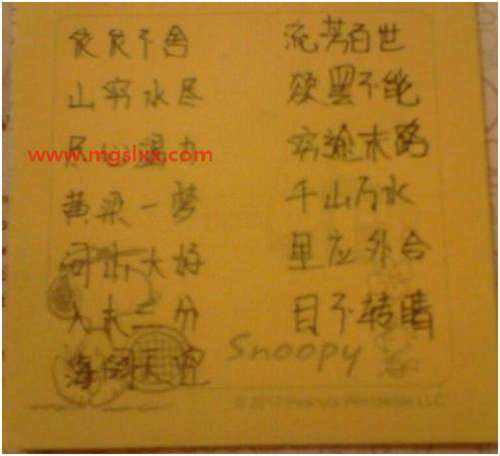 不舍 流芳百世
山穷水尽 欲罢不能
尽心竭力 穷途末路
www.mgslxx.com
黄粱一梦 千山万水
河山大好 里应外合
入木三分 目不转睛
海阔天空 Snoopy
Peanuts Worldwide LLC